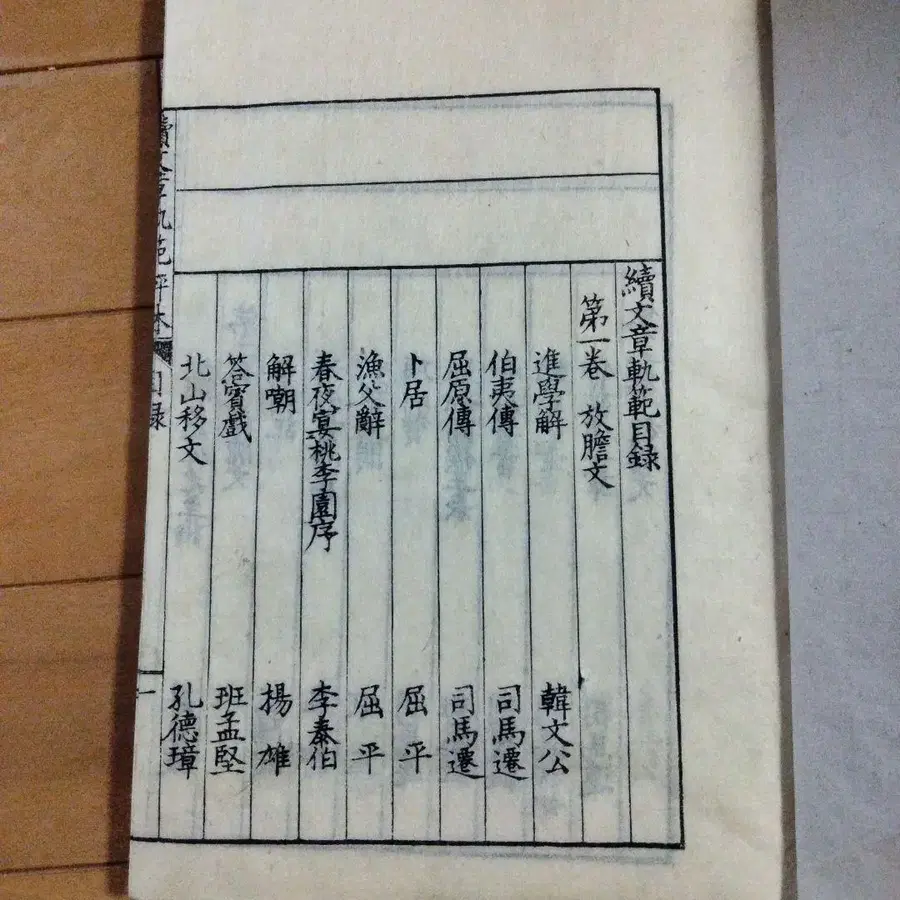 續文章軌範目録
第一卷 放膽文
進學解 韓文公
伯夷傳 司馬遷
屈原傳 司馬遷
卜居 屈平
漁父辭 屈平
春夜宴桃李園序 李泰伯
解嘲 楊雄
答賓戲 班孟堅
北山移文 孔德璋
續文章軌範評本 目録 一